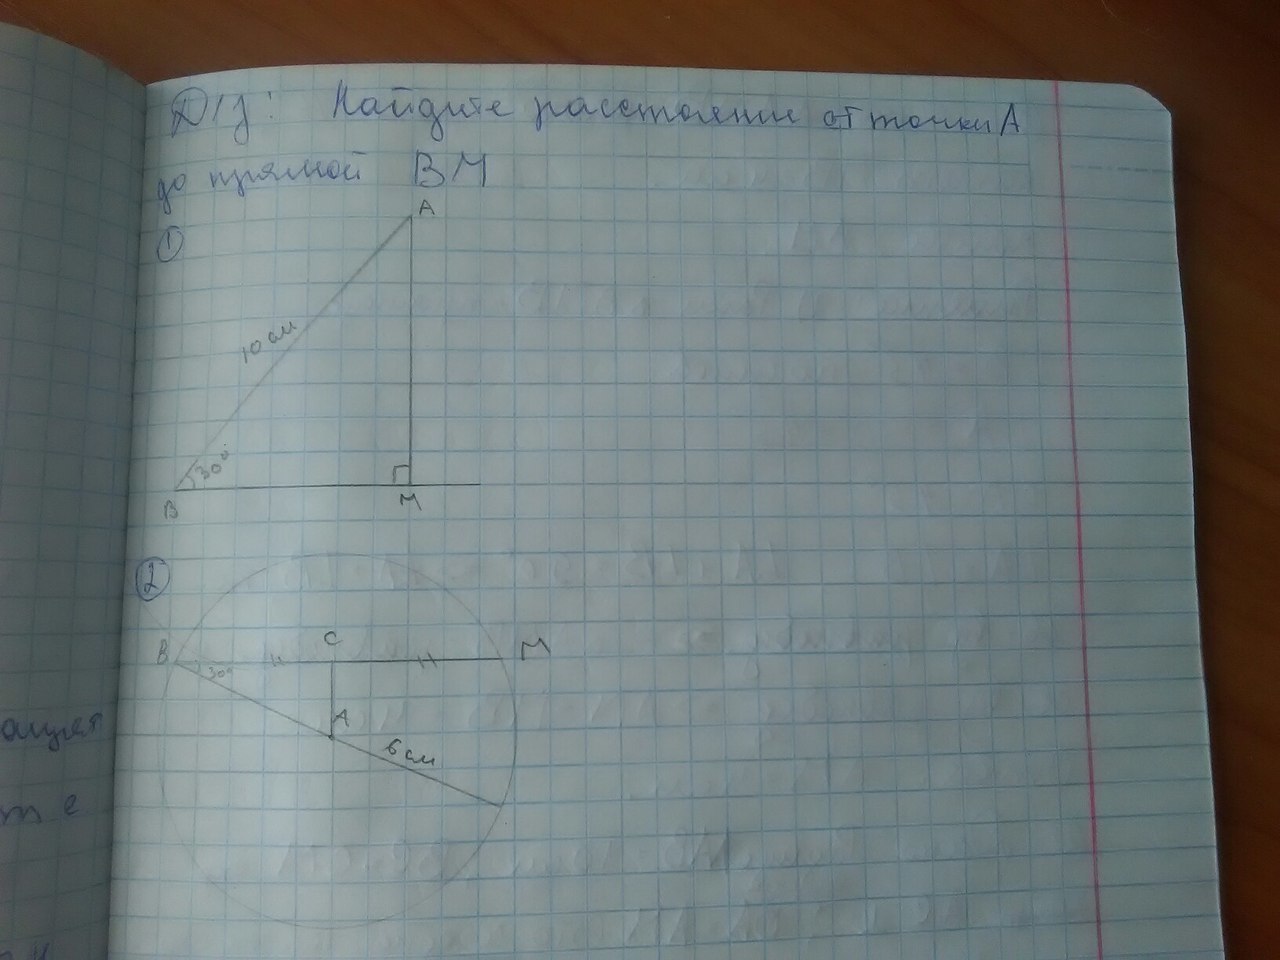 Д/з: Найдите расстояние от точки А
до прямой ВМ
①
А
10 см
30°
В
М
②
В
С
М
30°
А
6 см
т е